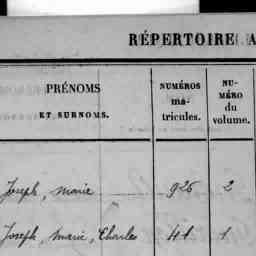 RÉPERTOIRE A
PRÉNOMS
ET SURNOMS.
NUMÉROS
ma-
tricules.
NU-
MÉRO
du
volume.
Joseph, marie 926 2
Joseph, marie, Charles 41 1